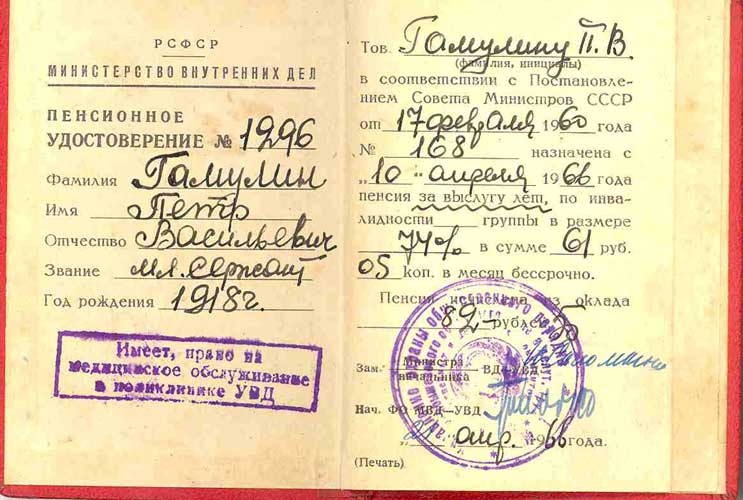 РСФСР
МИНИСТЕРСТВО ВНУТРЕННИХ ДЕЛ
ПЕНСИОННОЕ
УДОСТОВЕРЕНИЕ № 1296
Фамилия Гамулин
Имя Петр
Отчество Васильевич
Звание мл. сержант
Год рождения 1918г.
Имеет, право на
медицинское обслуживание
в поликлинике УВД
Тов. Гамулину П.В.
(фамилия, инициалы)
в соответствии с Постановле-
нием Совета Министров СССР
от 17 февраля 1960 года
№ 168 назначена с
„10 " апреля 1966 года
пенсия за выслугу лет, по инва-
лидности группы в размере
74% в сумме 61 руб.
05 коп. в месяц бессрочно.
Пенсия исчислена из оклада
82- рублей
Зам. Министра ВД—УВД
начальника
Нач. ФО МВД—УВД
апр. 1966 года.
(Печать)